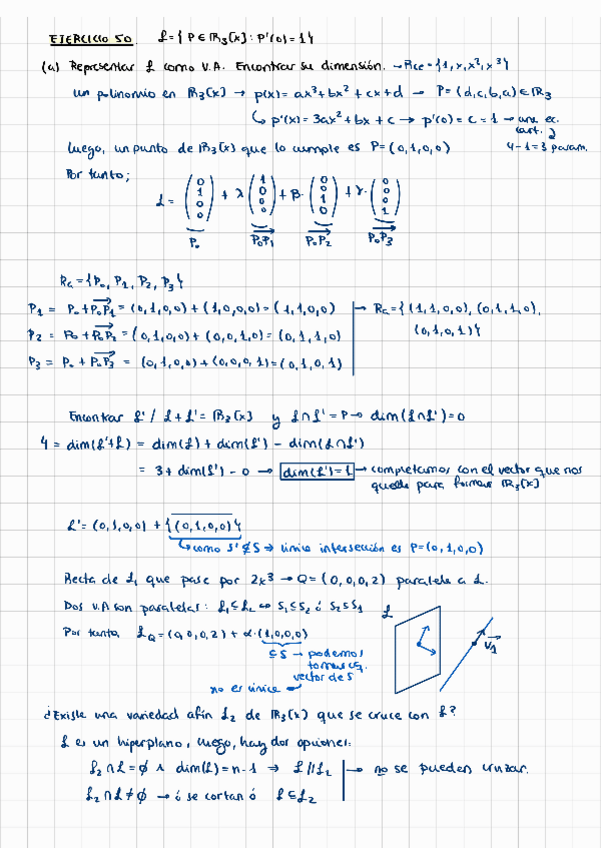 EJERCICIO 50. L = { P ∈ ℝ₃[x] : P'(0) = 1 }
(a) Representar L como V.A. Encontrar su dimensión. → Rcc = {1, x, x², x³}
Un polinomio en ℝ₃[x] → p(x) = ax³ + bx² + cx + d → P = (d, c, b, a) ∈ ℝ3
↳ p'(x) = 3ax² + bx + c → p'(0) = c = 1 → una ec. cart.
4 - 1 = 3 param.
Luego, un punto de ℝ₃[x] que lo cumple es P = (0, 1, 0, 0)
Por tanto;
L = (0 1 0 0) + λ (1 0 0 0) + β · (0 0 1 0) + γ · (0 0 0 1)
P₀ P₀P₁ P₀P₂ P₀P₃
Ra = {P₀, P₁, P₂, P₃}
P₁ = P₀ + P₀P₁ = (0, 1, 0, 0) + (1, 0, 0, 0) = (1, 1, 0, 0) → Ra = { (1, 1, 0, 0), (0, 1, 1, 0),
P₂ = P₀ + P₀P₂ = (0, 1, 0, 0) + (0, 0, 1, 0) = (0, 1, 1, 0) (0, 1, 0, 1)}
P₃ = P₀ + P₀P₃ = (0, 1, 0, 0) + (0, 0, 0, 1) = (0, 1, 0, 1)
Encontrar L' / L + L' = ℝ₃[x] y L ∩ L' = P → dim(L ∩ L') = 0
4 = dim(L' + L) = dim(L) + dim(L') - dim(L ∩ L')
= 3 + dim(L') - 0 → dim(L') = 1 → completamos con el vector que nos
quede para formar ℝ₃[x]
L' = (0, 1, 0, 0) + {(0, 1, 0, 0)}
↳ como S' ⊄ S ⇒ única intersección es P = (0, 1, 0, 0)
Recta de L₁ que pase por 2x³ → Q = (0, 0, 0, 2) paralela a L.
Dos V.A son paralelas : L₁ ⊆ L₂ ⇔ S₁ ⊆ S₂ ó S₂ ⊆ S₁
L
Por tanto, L_Q = (0, 0, 0, 2) + α · (1, 0, 0, 0)
v₁
⊆ S → podemos
tomar cq.
vector de S
no es única
¿Existe una variedad afín L₂ de ℝ₃[x] que se cruce con L?
L es un hiperplano, luego, hay dos opciones:
L₂ ∩ L = ∅ ∧ dim(L) = n - 1 ⇒ L // L₂ → no se pueden cruzar.
L₂ ∩ L ≠ ∅ → ó se cortan ó L ⊆ L₂